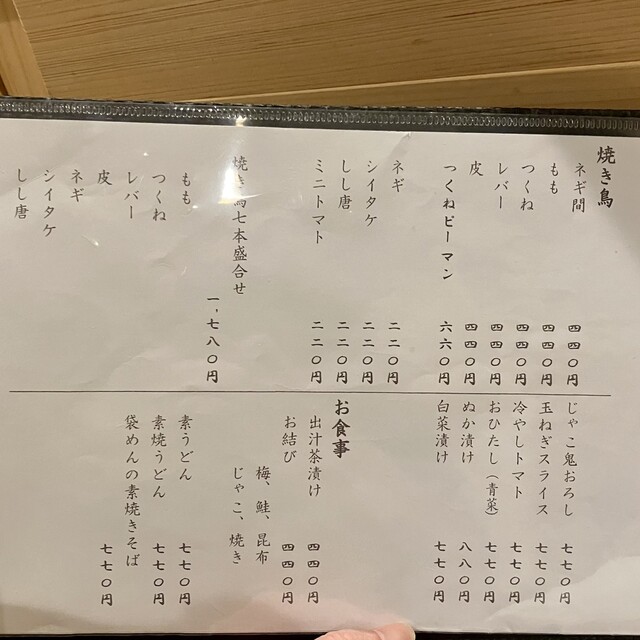 焼き鳥
ネギ間 四四〇円
もも 四四〇円
つくね 四四〇円
レバー 四四〇円
皮 四四〇円
つくねピーマン 六六〇円
ネギ 二二〇円
シイタケ 二二〇円
しし唐 二二〇円
ミニトマト 二二〇円
焼き鳥七本盛合せ
一、七八〇円
もも
つくね
レバー
皮
ネギ
シイタケ
しし唐
じゃこ鬼おろし 七七〇円
玉ねぎスライス 七七〇円
冷やしトマト 七七〇円
おひたし（青菜） 七七〇円
ぬか漬け 八八〇円
白菜漬け 七七〇円
お食事
出汁茶漬け 四四〇円
お結び 四四〇円
梅、鮭、昆布
じゃこ、焼き
素うどん 七七〇円
素焼うどん 七七〇円
袋めんの素焼きそば
七七〇円